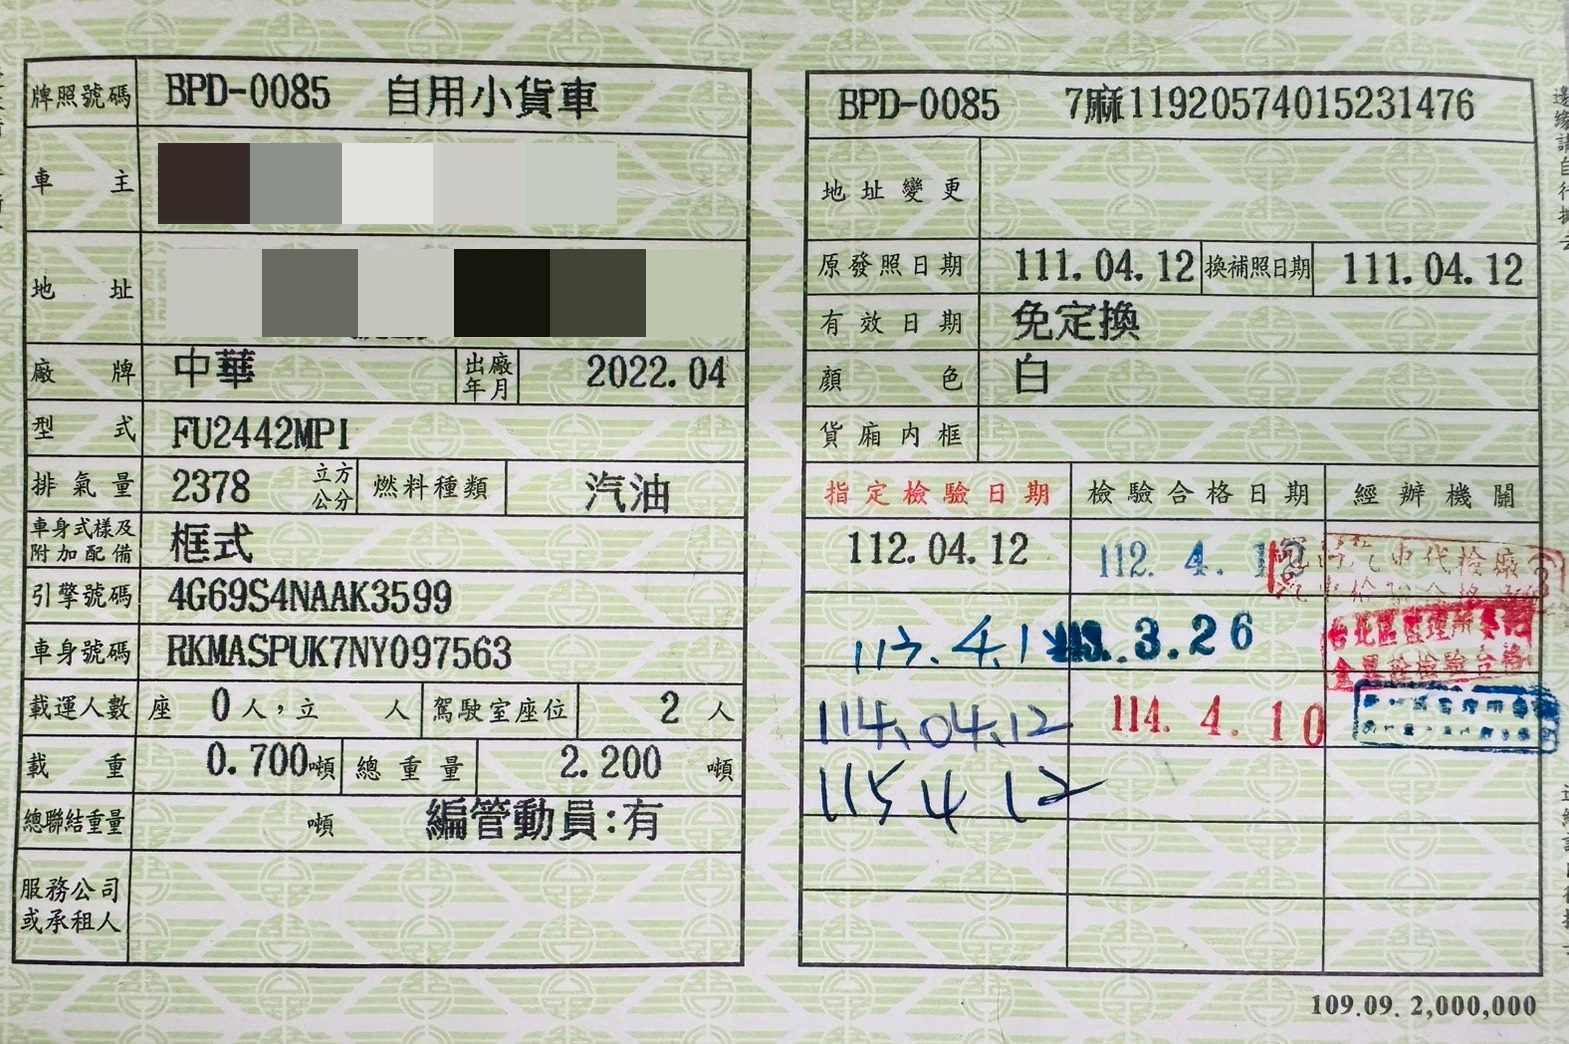 牌照號碼 BPD-0085 自用小貨車
車主
地址
廠牌 中華 出廠年月 2022.04
型式 FU2442MPI
排氣量 2378 立方公分 燃料種類 汽油
車身式樣及附加配備 框式
引擎號碼 4G69S4NAAK3599
車身號碼 RKMASPUK7NY097563
載運人數 座 0 人，立 人 駕駛室座位 2 人
載重 0.700噸 總重量 2.200 噸
總聯結重量 噸 編管動員:有
服務公司或承租人
BPD-0085 7麻11920574015231476
地址變更
原發照日期 111.04.12 換補照日期 111.04.12
有效日期 免定換
顏色 白
貨廂內框
指定檢驗日期 檢驗合格日期 經辦機關
112.04.12 112. 4. 12
113.4.1 3.26
台北區監理所
114.04.12 114. 4. 10
115 4 12
109.09. 2,000,000